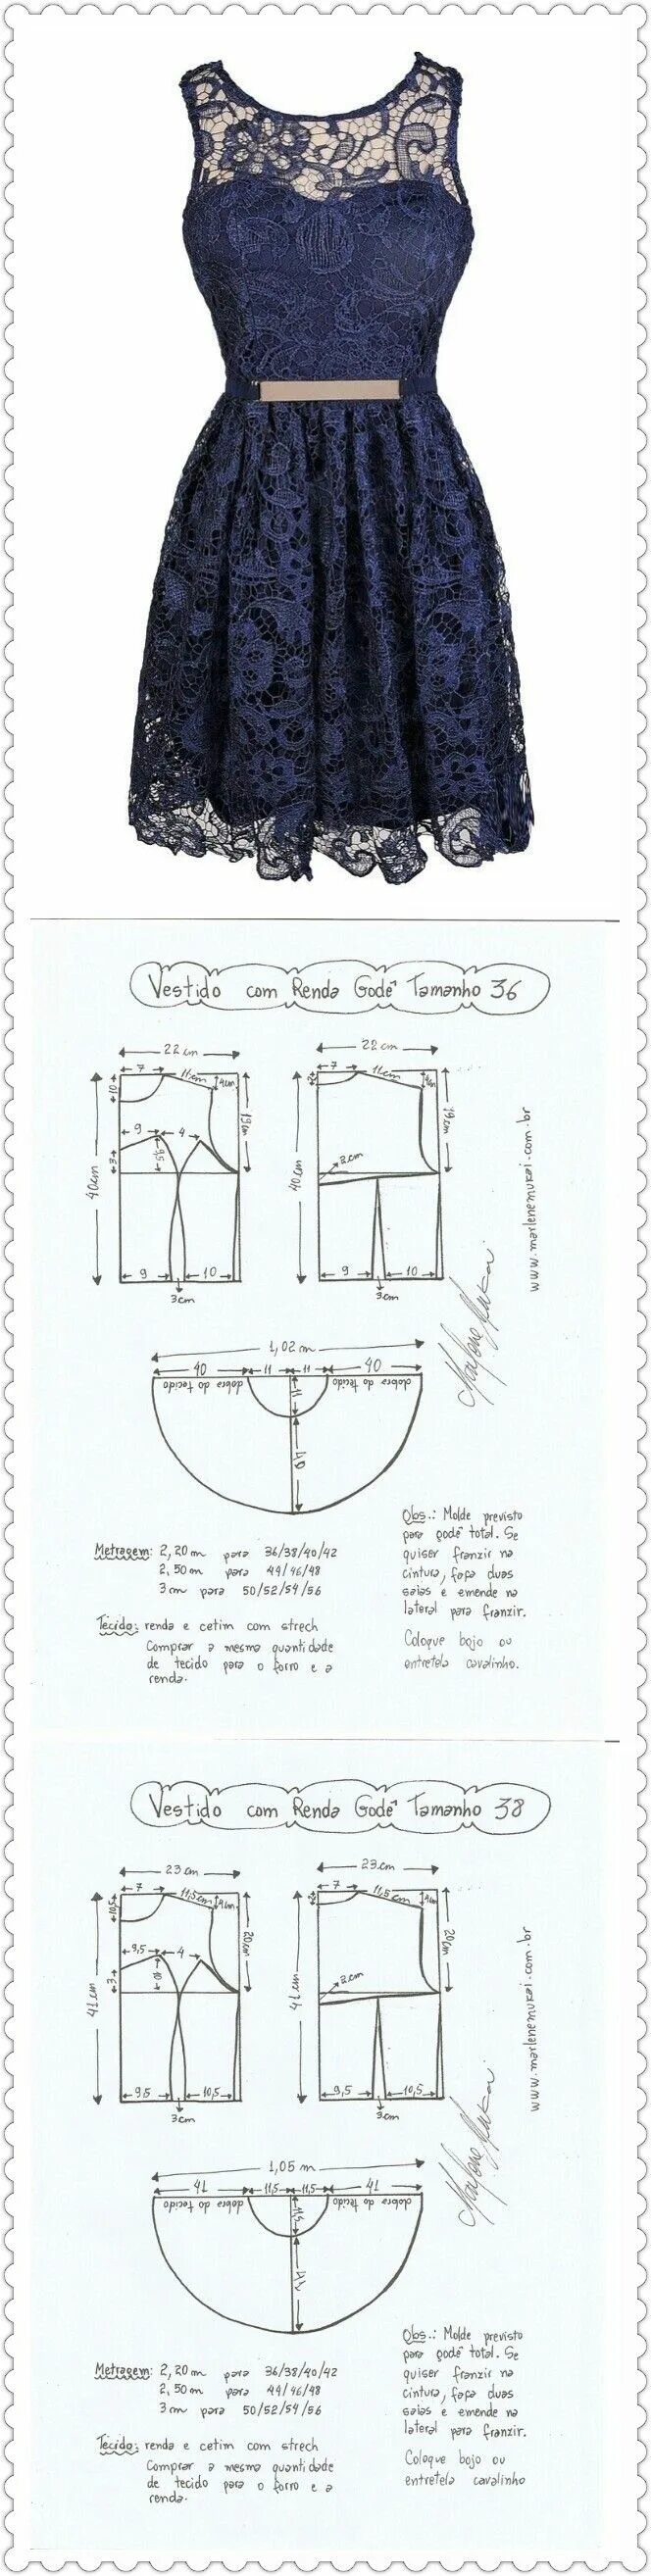 Vestido com Renda Godê Tamanho 36
22 cm
7
11cm
10
4cm
19cm
40cm
9
4
9,5
3
9
10
3cm
22 cm
7
11cm
4cm
19cm
40cm
2cm
9
10
3cm
www.marlenemukai.com.br
1,02 m
40
11
11
40
dobra do tecido
dobra do tecido
11
40
Metragem: 2,20 m para 36/38/40/42
2,50 m para 44/46/48
3 cm para 50/52/54/56
Tecido: renda e cetim com strech
Comprar a mesma quantidade
de tecido para o forro e a
renda.
Obs.: Molde previsto
para godê total. Se
quiser franzir na
cintura, faça duas
saias e emende na
lateral para franzir.
Coloque bojo ou
entretela cavalinho.
Vestido com Renda Godê Tamanho 38
23 cm
7
11,5cm
10,5
4cm
20cm
41cm
9,5
4
10
3
9,5
10,5
3cm
23cm
7
11,5cm
4cm
20cm
41cm
2cm
9,5
10,5
3cm
www.marlenemukai.com.br
1,05 m
41
11,5
11,5
41
dobra do tecido
dobra do tecido
11,5
41
Metragem: 2,20 m para 36/38/40/42
2,50 m para 44/46/48
3 cm para 50/52/54/56
Tecido: renda e cetim com strech
Comprar a mesma quantidade
de tecido para o forro e a
renda.
Obs.: Molde previsto
para godê total. Se
quiser franzir na
cintura, faça duas
saias e emende na
lateral para franzir.
Coloque bojo ou
entretela cavalinho